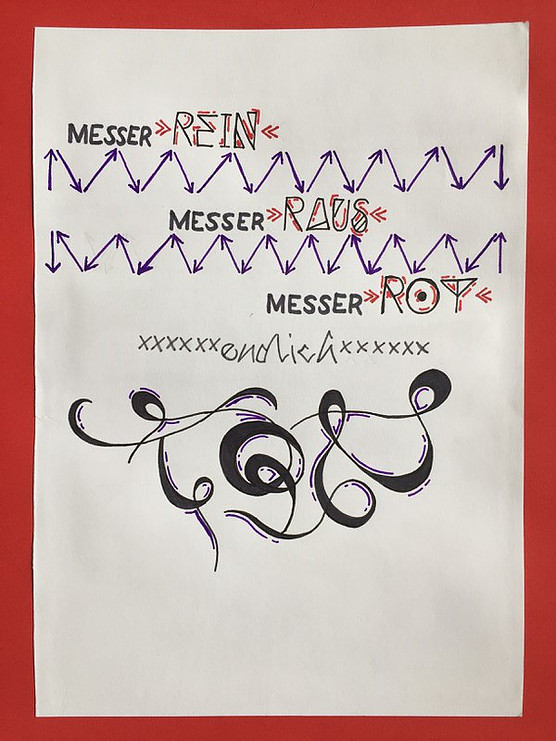 MESSER »REIN«
MESSER »RAUS«
MESSER »ROT«
xxxxxxendlichxxxxxx